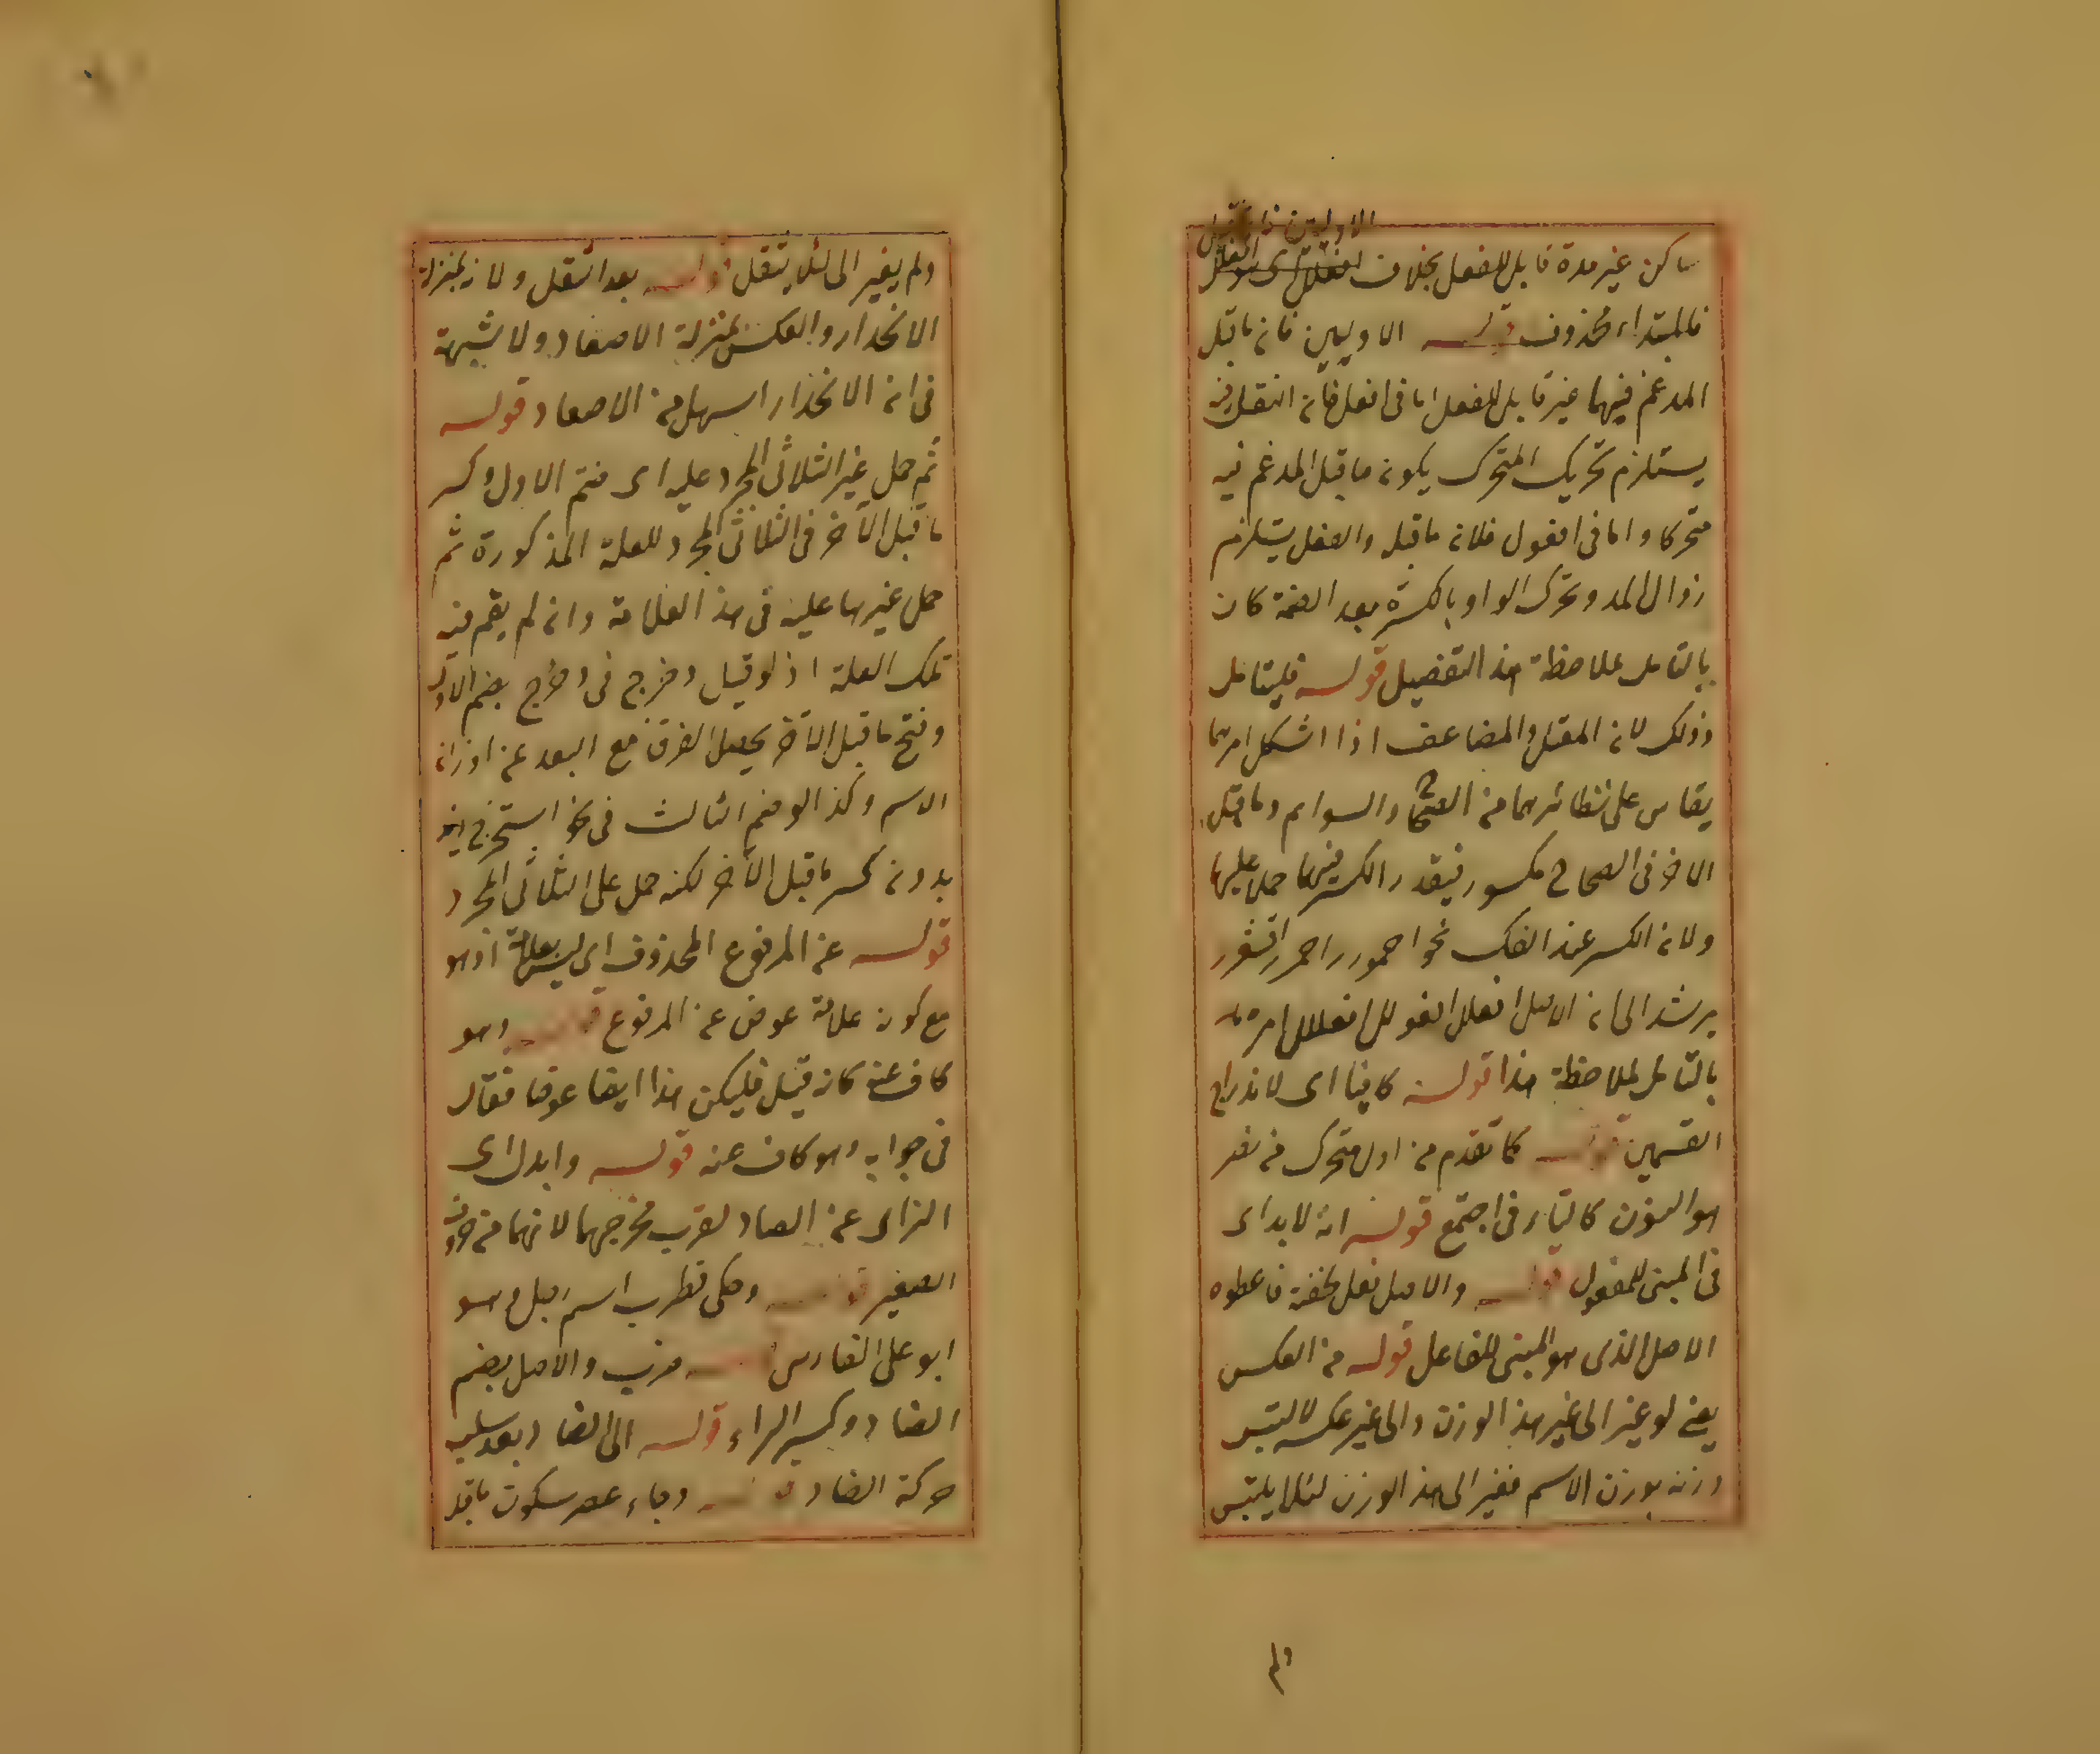 الاوليين
ساكن غير مدة قابل للفعل بخلاف
فالمبتداء محذوف قوله الاوليين فان ما قبل
المدغم فيهما غير قابل للفعل اما فى افعل فلان الفعل فيه
يستلزم تحريك المتحرك بكون ما قبل المدغم فيه
متحركا واما فى افعول فلان ما قبله والفعل يستلزم
زوال المد وتحرك الواو بالكسرة بعد الضمة كان
بالتامل ملاحظة هذا التفصيل قوله فليتامل
وذلك لان المعتل والمضاعف اذا اشكل امرهما
يقاس على نظائرهما من الصحاح والسوالم وما قبل
الاخر فى الصحاح مكسور فيقدر الكسر فيهما حملا عليها
ولان الكسر عند الفك نحو احمورر احمرر اقشعرر
يرشد الى ان الاصل افعلل افعولل افعللل امره
بالتامل لملاحظة هذا قوله كافيا اى لاندراج
القسمين قوله كما تقدم من اول متحرك من نصر
هو النون كالتاء فى اجتمع قوله انه لا بد اى
فى المبنى للمفعول قوله والاصل فعل لخفته فاعطوه
الاصل الذى هو المبنى للفاعل قوله من العكس
يعنى لو غير الى غير هذا الوزن والى غير عكسه لالتبس
وزنه بوزن الاسم فغير الى هذا الوزن لئلا يلتبس
ولم
ولم يغير الى لئلا يثقل قوله بعد الثقل ولانه بمنزلة
الانحدار والعكس بمنزلة الاصعاد ولا شبهة
فى ان الانحدار اسهل من الاصعاد قوله
ثم حمل غير الثلاثى المجرد عليه اى ضم الاول وكسر
ما قبل الآخر فى الثلاثى المجرد للعلة المذكورة ثم
حمل غيرها عليه فى هذا العلامة وان لم يقم فيه
تلك العلة اذ لو قيل دحرج فى دحرج بضم الاول
وفتح ما قبل الآخر يحصل الفرق مع البعد عن اوزان
الاسم وكذا لو ضم الثالث فى نحو استخرج
بدون كسر ما قبل الآخر لكنه حمل على الثلاثى المجرد
قوله عن المرفوع المحذوف اى ليس بعلامة اذ هو
مع كونه علامة عوض عن المرفوع قوله وهو
كاف عنه كان قيل فليكن هذا ايضا عوضا فقال
فى جوابه وهو كاف عنه قوله وابدل اى
الزاى عن الصاد لقرب مخرجهما لانهما من حروف
الصفير قوله وحكى قطرب اسم رجل وهو
ابو على الفارس قوله ضرب والاصل بضم
الضاد وكسر الراء قوله الى الضاد بعد سلب
حركة الضاد قوله وجاء عصر سكون ما قبل